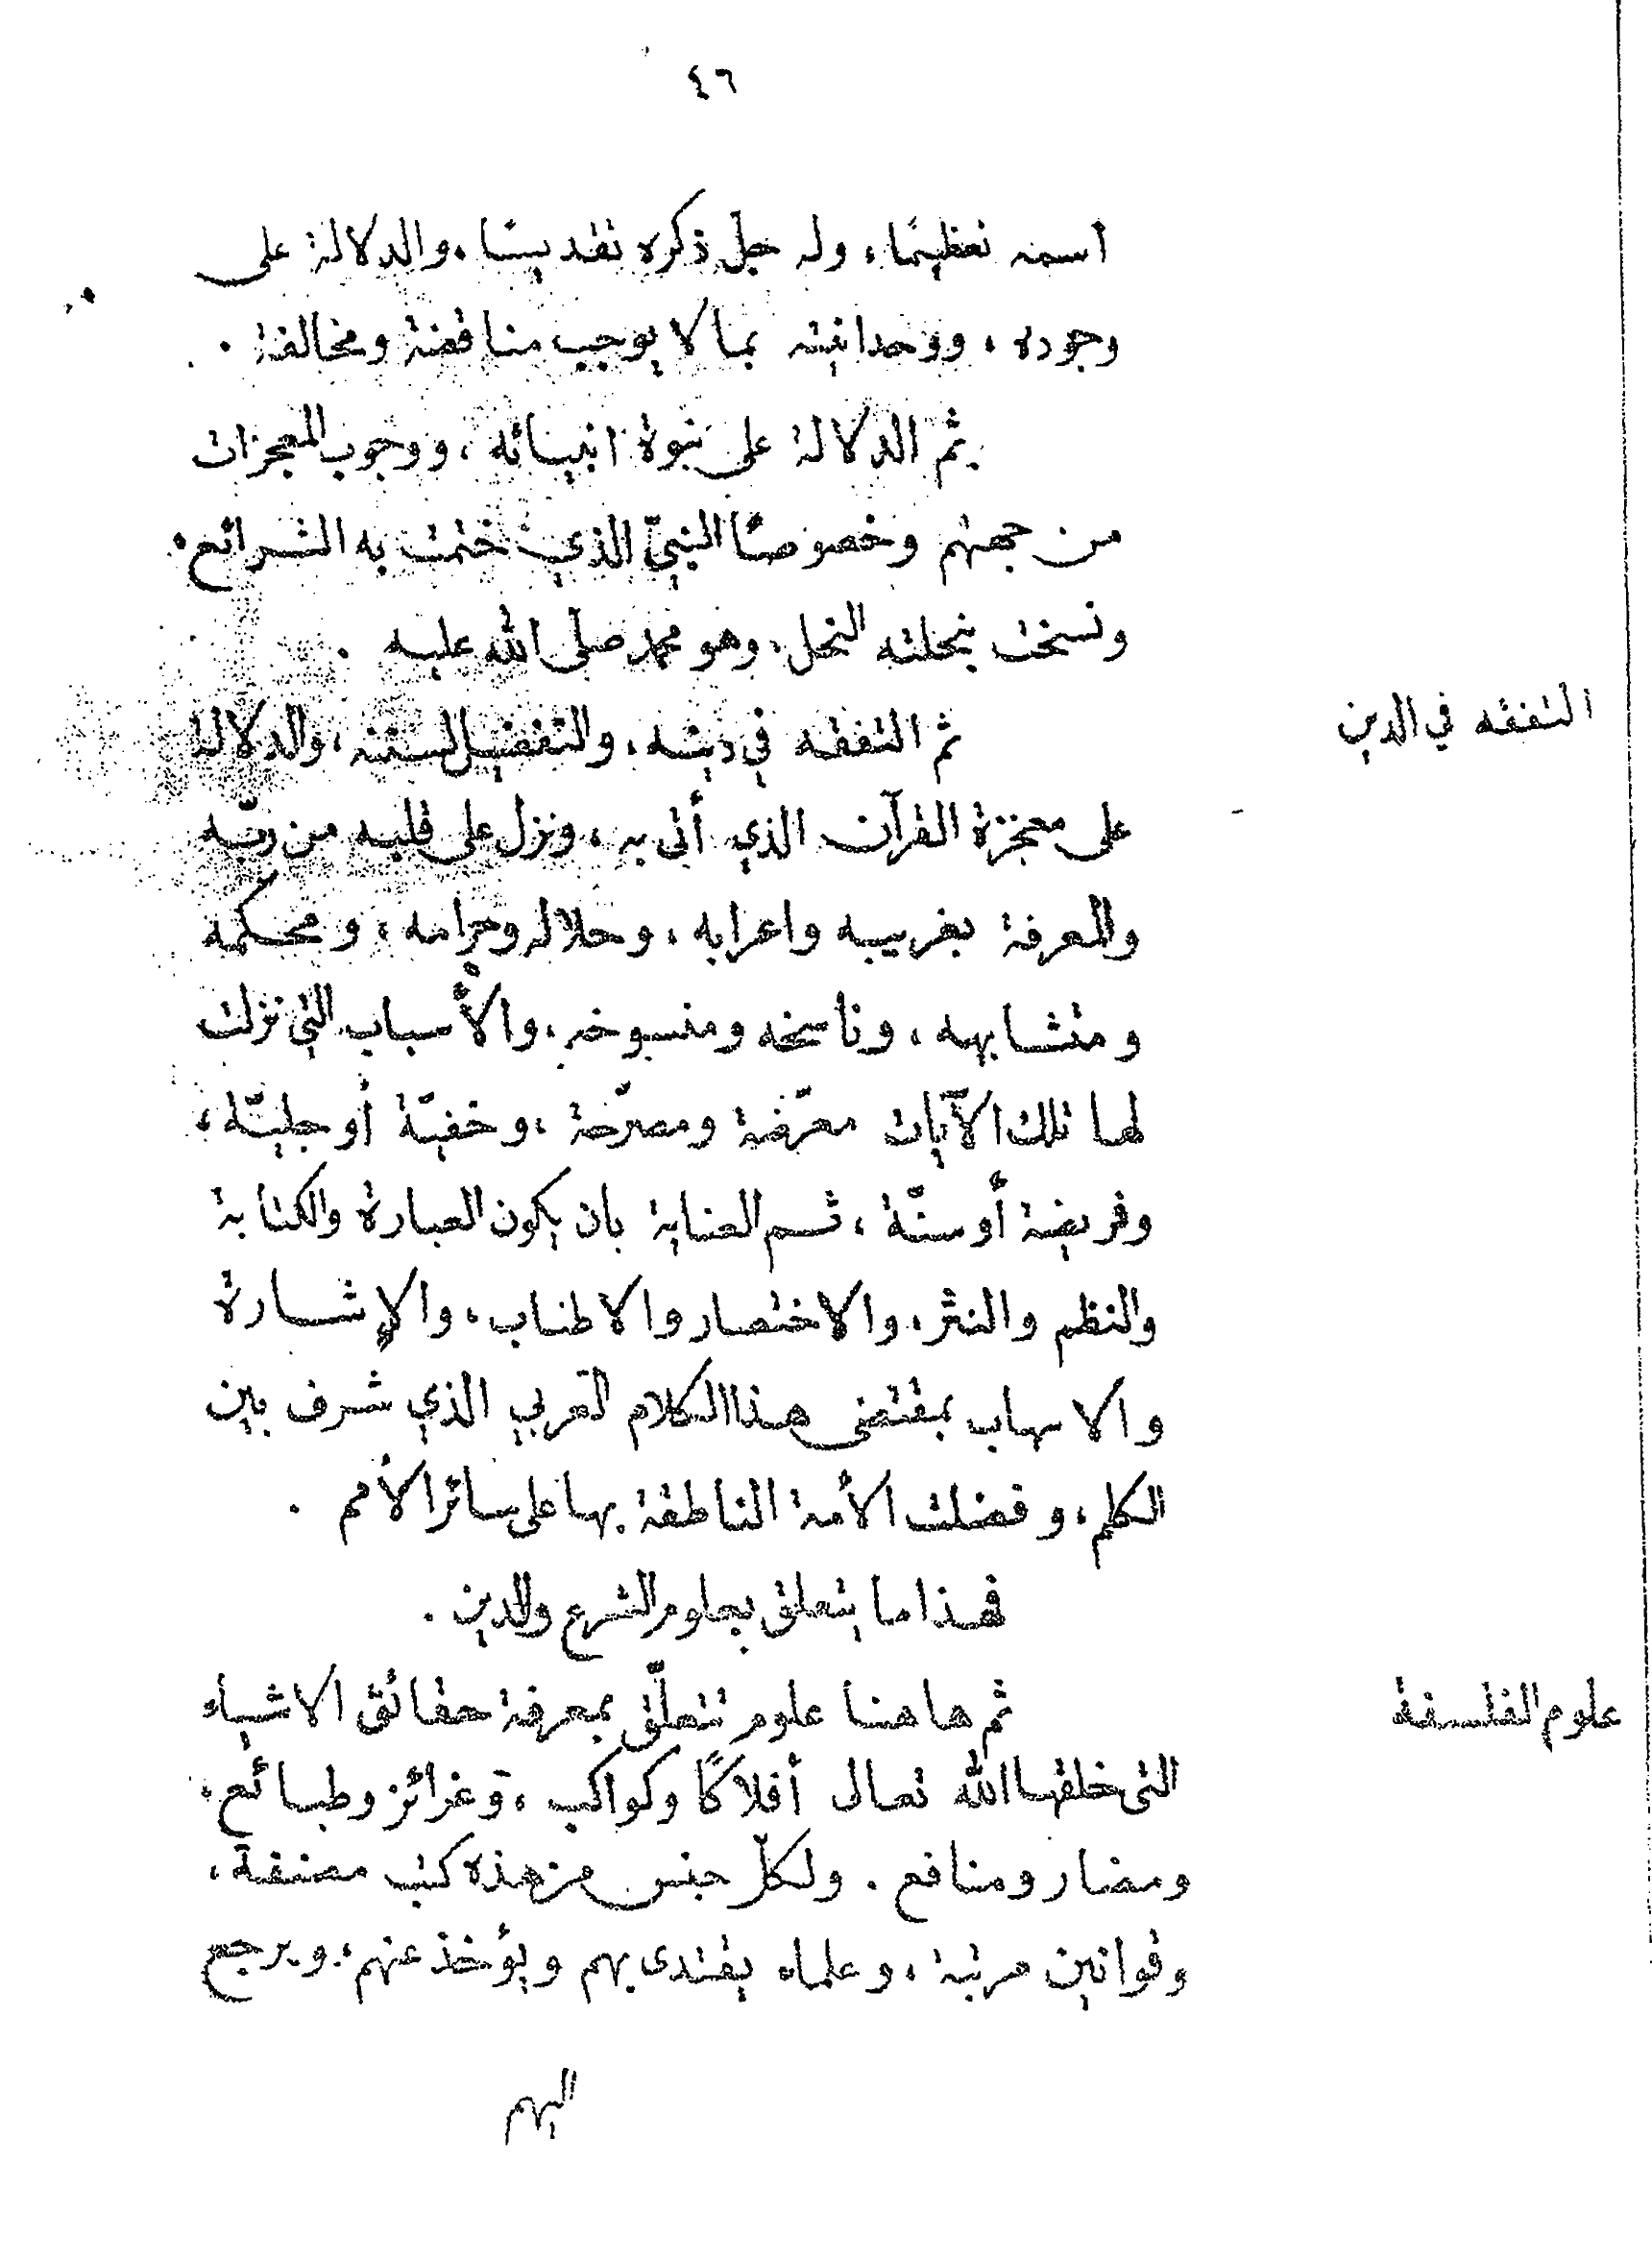 ٤٦
اسمه تعظيمًا، وله جلّ ذكره تقديسًا، والدلالة على
وجوده، ووحدانيته بما لا يوجب مناقضة ومخالفة.
ثم الدلالة على نبوة انبيائه، ووجوب المعجزات
من جهتهم وخصوصًا النبيّ الذي ختمت به الشرائع.
ونسخت بنحلته النحل، وهو محمد صلّى الله عليه.
التفقه في الدين
ثم التفقه في دينه، والتفضيل لسنته، والدلالة
على معجزة القرآن الذي أتى به، ونزل على قلبه من ربّه
والمعرفة بغريبه واعرابه، وحلاله وحرامه، ومحكمه
ومتشابهه، وناسخه ومنسوخه، والأسباب التي نزلت
لها تلك الآيات معرّضة ومصرّحة، وخفيّة أو جليّة،
وفريضة أو سنّة، ثم العناية بان يكون العبارة والكتابة
والنظم والنثر، والاختصار والاطناب، والإشارة
والاسهاب بمقتضى هذا الكلام العربي الذي شرف بين
الكلم، وفضلت الأمة الناطقة بها على سائر الأمم.
فهذا ما يتعلق بعلوم الشرع والدين.
علوم الفلسفة
ثم هاهنا علوم تتعلّق بمعرفة حقائق الاشياء
التى خلقها الله تعالى أفلاكًا وكواكب، وغرائز وطبائع،
ومضار ومنافع. ولكلّ جنس من هذه كتب مصنفة،
وقوانين مرتبة، وعلماء يقتدى بهم ويؤخذ عنهم، ويرجع
اليهم